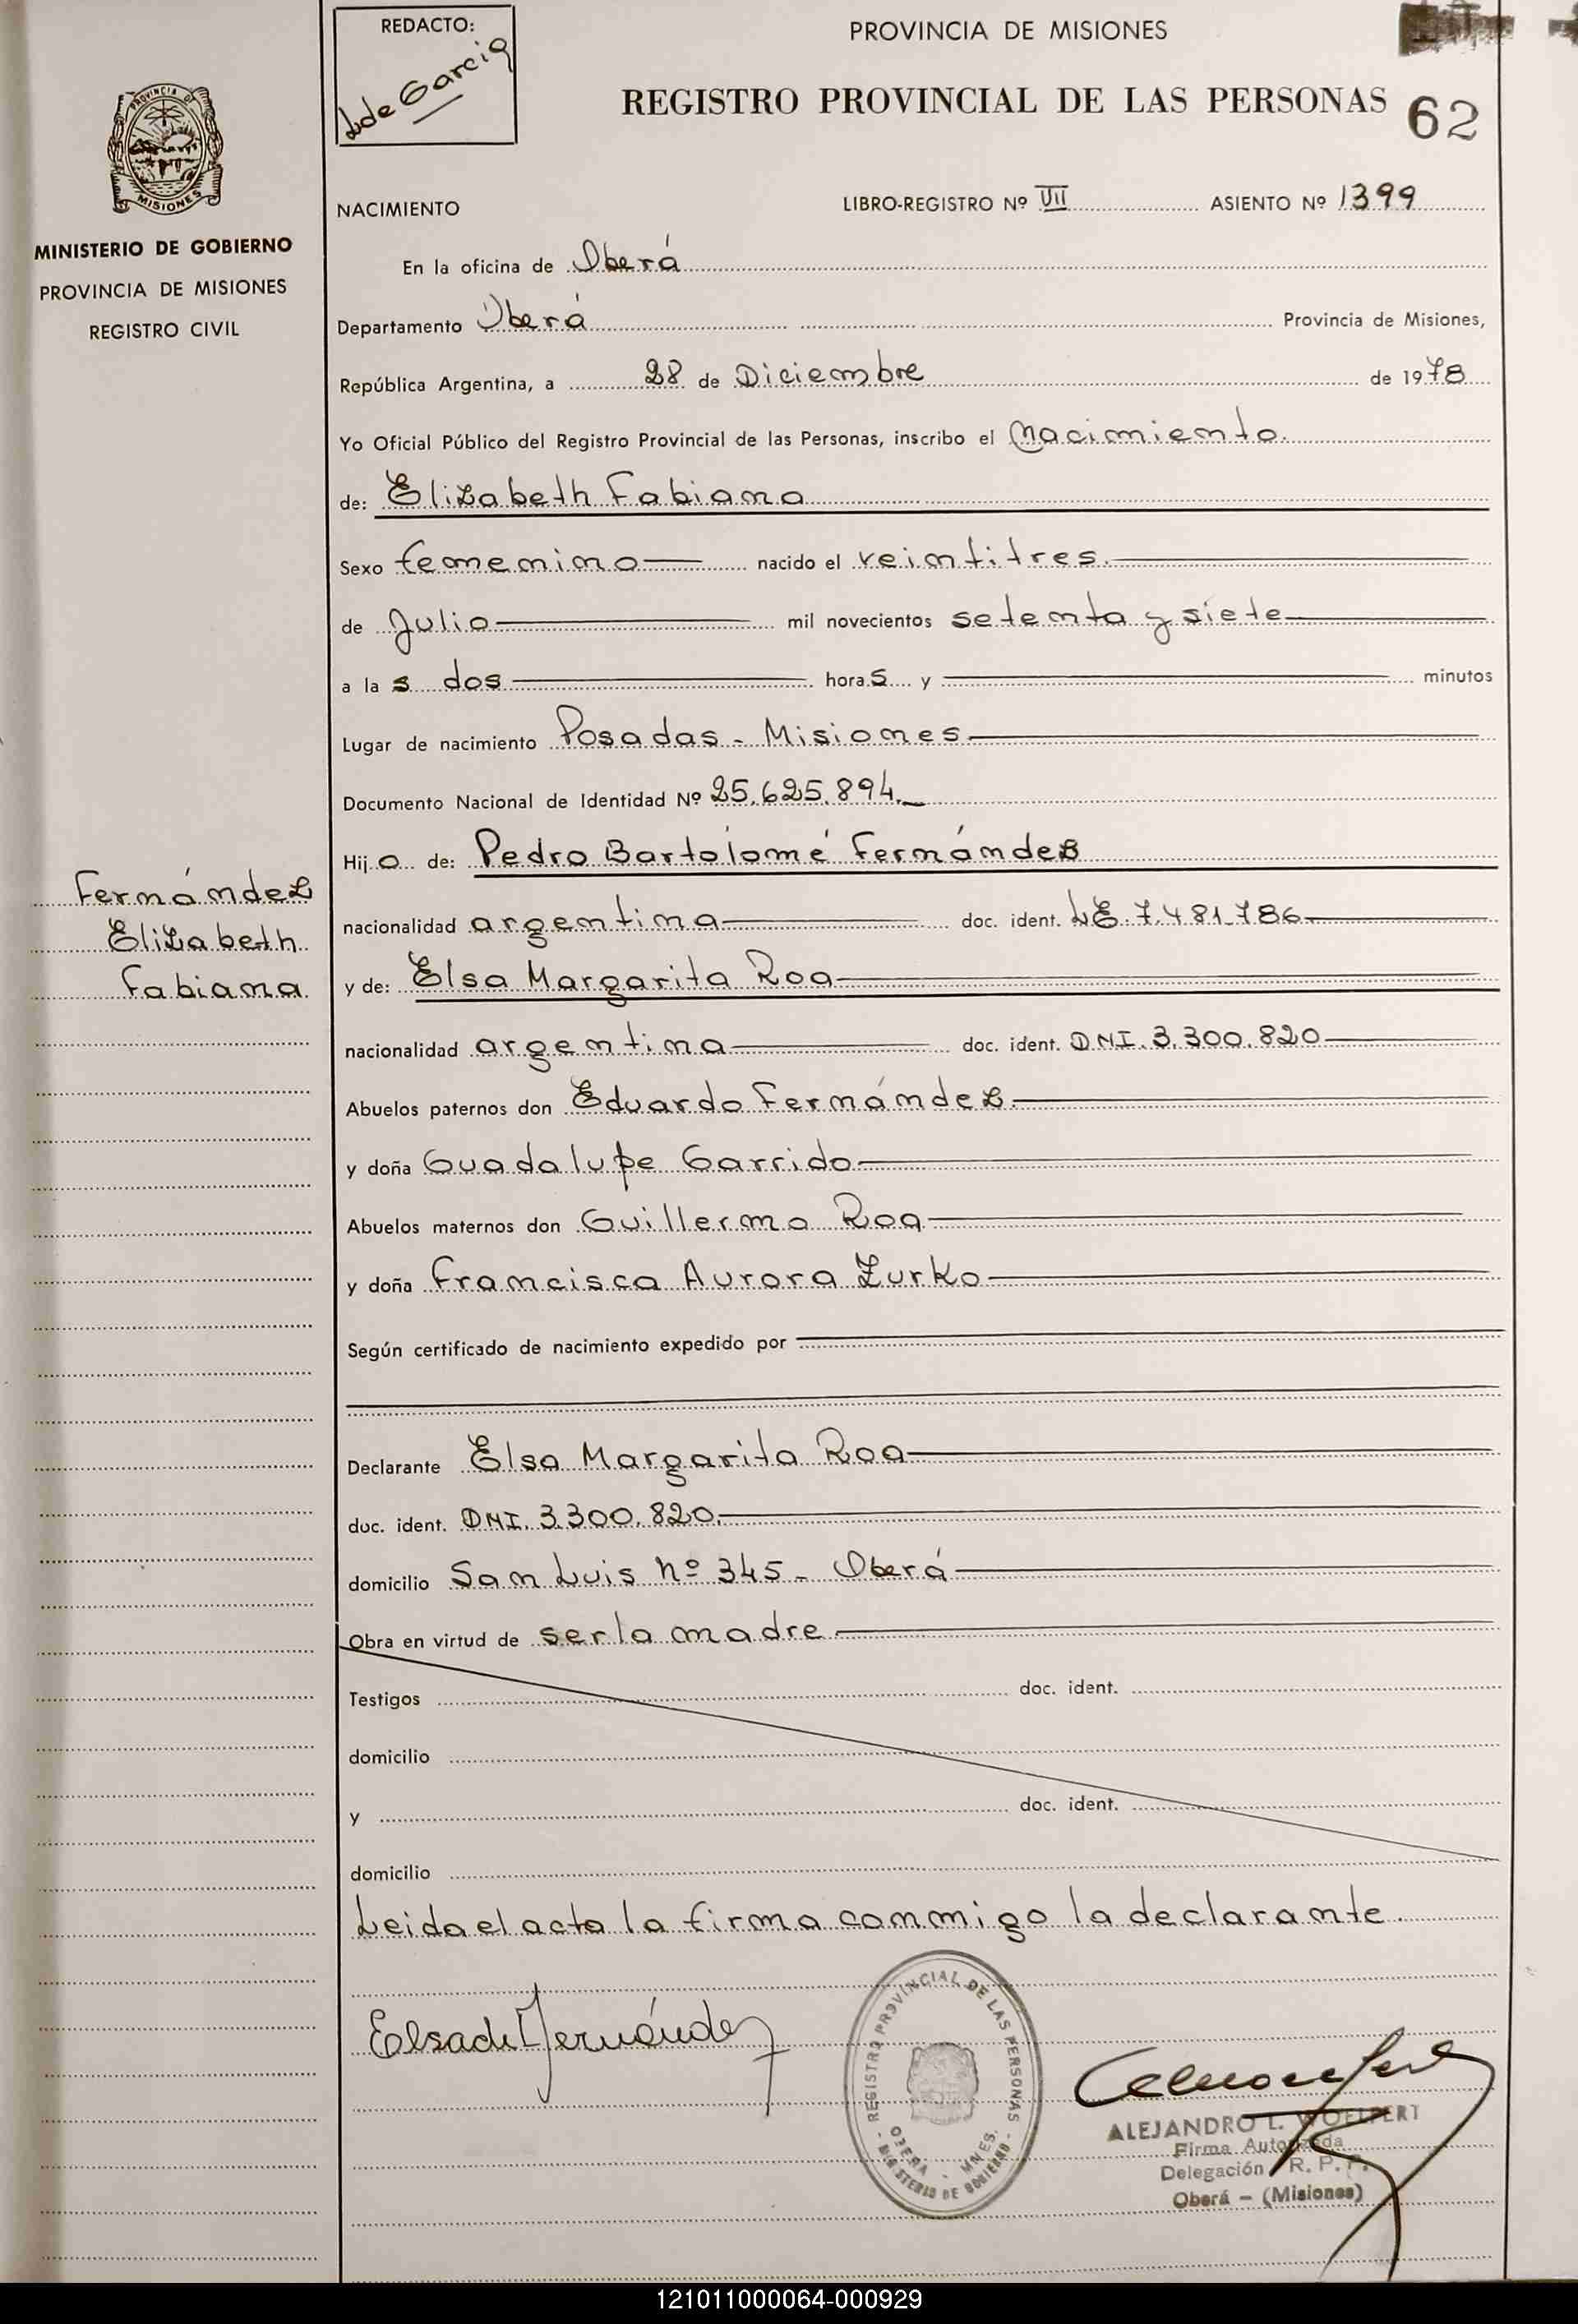 REDACTO:
L de Garcia
PROVINCIA DE MISIONES
REGISTRO PROVINCIAL DE LAS PERSONAS 62
PROVINCIA DE
MISIONES
MINISTERIO DE GOBIERNO
PROVINCIA DE MISIONES
REGISTRO CIVIL
NACIMIENTO LIBRO-REGISTRO Nº VII ASIENTO Nº 1399
En la oficina de Oberá
Departamento Oberá Provincia de Misiones,
República Argentina, a 28 de Diciembre de 1978
Yo Oficial Público del Registro Provincial de las Personas, inscribo el Nacimiento.
de: Elizabeth Fabiana
Sexo femenino nacido el veintitres.
de Julio mil novecientos setenta y siete
a las dos horas y minutos
Lugar de nacimiento Posadas - Misiones
Documento Nacional de Identidad Nº 25.625.894.
Hijo de: Pedro Bartolomé Fernández
nacionalidad argentina doc. ident. LE. 7.481.786
y de: Elsa Margarita Roa
nacionalidad argentina doc. ident. DNI. 3.300.820
Abuelos paternos don Eduardo Fernández.
y doña Guadalupe Garrido
Abuelos maternos don Guillermo Roa
y doña Francisca Aurora Zurko
Según certificado de nacimiento expedido por
Declarante Elsa Margarita Roa
doc. ident. DNI. 3.300.820.
domicilio San Luis Nº 345 - Oberá
Obra en virtud de ser la madre
Testigos doc. ident.
domicilio
y doc. ident.
domicilio
Leida el acta la firma conmigo la declarante.
Fernández
Elizabeth
Fabiana
Elsa de Fernández
REGISTRO PROVINCIAL DE LAS PERSONAS
OBERA - MNES.
MINISTERIO DE GOBIERNO
ALEJANDRO L. WOELPERT
Firma Autorizada
Delegación R. P. P.
Oberá - (Misiones)
121011000064-000929